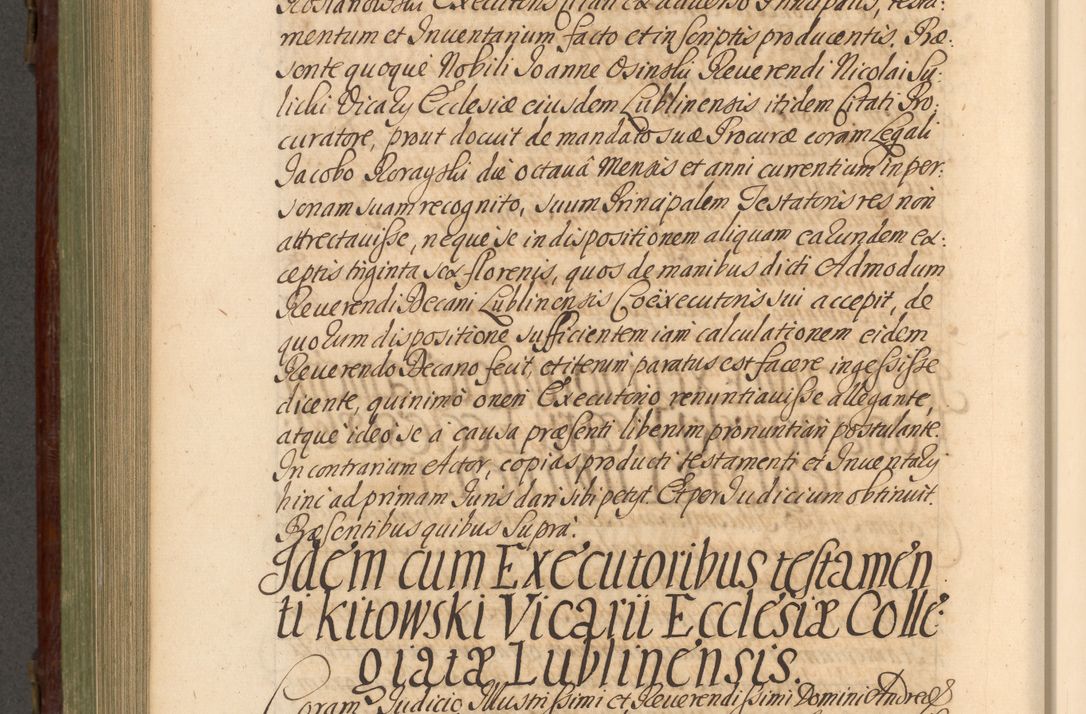 Rostanowski Executoris citati ex adverso Principalis, testa:
mentum et Inventarium facto et in scriptis producentis. Præ:
sente quoque Nobili Joanne Osinski Reverendi Nicolai Su:
licki Vicarÿ Ecclesiæ eiusdem Lublinensis itidem Citati Pro:
curatore, prout docuit de mandato suæ Procuræ coram Legali
Jacobo Korayski die octavâ Mensis et anni currentium in per:
sonam suam recognito, suum Principalem Testatoris res non
attrectavisse, neque se in dispositionem aliquam earundem ex:
ceptis triginta sex florenis, quos de manibus dicti Admodum
Reverendi Decani Lublinensis Coëxecutoris sui accepit, de
quorum dispositione sufficientem iam calculationem eidem
Reverendo Decano fecit, et iterum paratus est facere ingessisse
dicente, quinimò oneri Executorio renuntiavisse allegante,
atque ideo se à causa præsenti liberum pronuntiari postulante.
In contrarium Actor, copias producti testamenti et Inventarÿ
hinc ad primam Juris dari sibi petyt. Et per Judicium obtinuit.
Præsentibus quibus supra.
Idem cum Executoribus testamen
ti Kitowski Vicarii Ecclesiæ Colle:
giatæ Lublinensis.
Coram Judicio Illustrissimi et Reverendissimi Domini Andreæ